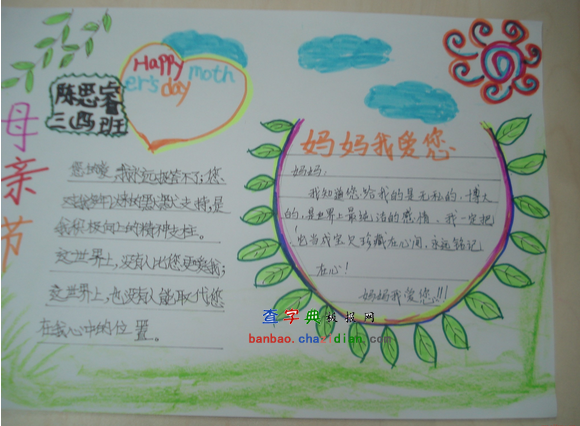 母亲节
Happy
moth
er's day
陈思睿
三(四)班
妈妈我爱您
妈妈:
我知道您给我的是无私的,博大
的,是世界上最纯洁的感情,我一定把
它当成宝贝珍藏在心间,永远铭记
在心!
妈妈我爱您!!!
您的爱,我永远报答不了;您
支持是
我积极向上的精神支柱。
这世界上,没有人比您更爱我;
这世界上,也没有人能取代您
在我心中的位置。
查字典 板报网
banbao.chazidian.com